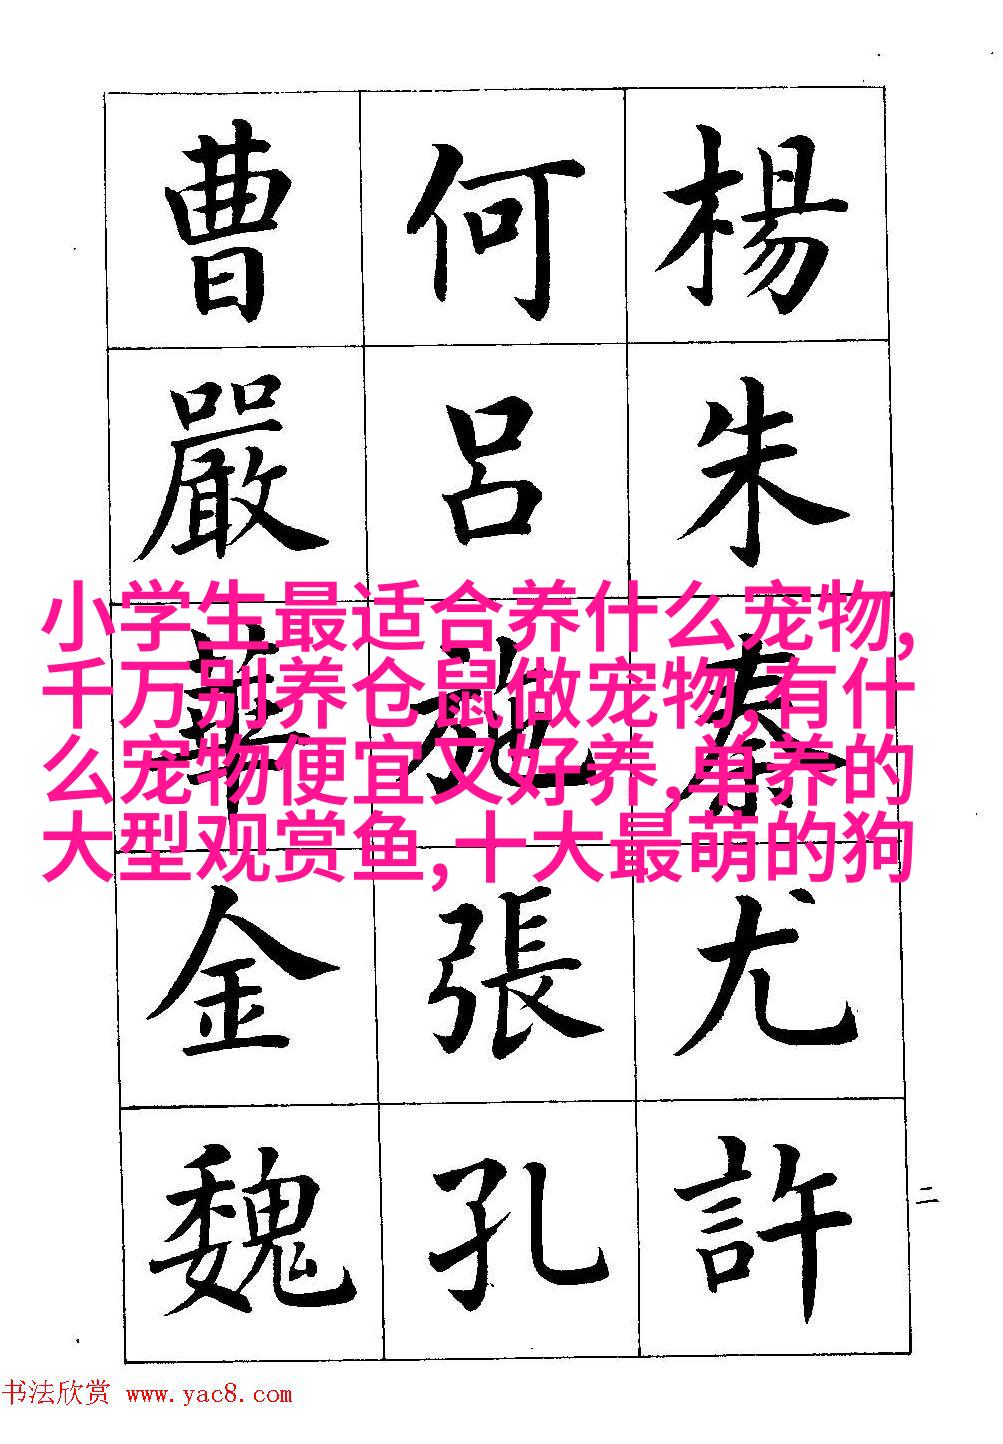 楊朱秦尤許
何呂施張孔
曹嚴華金魏
小学生最适合养什么宠物,
千万别养仓鼠做宠物,有什
么宠物便宜又好养,单养的
大型观赏鱼,十大最萌的狗
二
书法欣赏 www.yac8.com